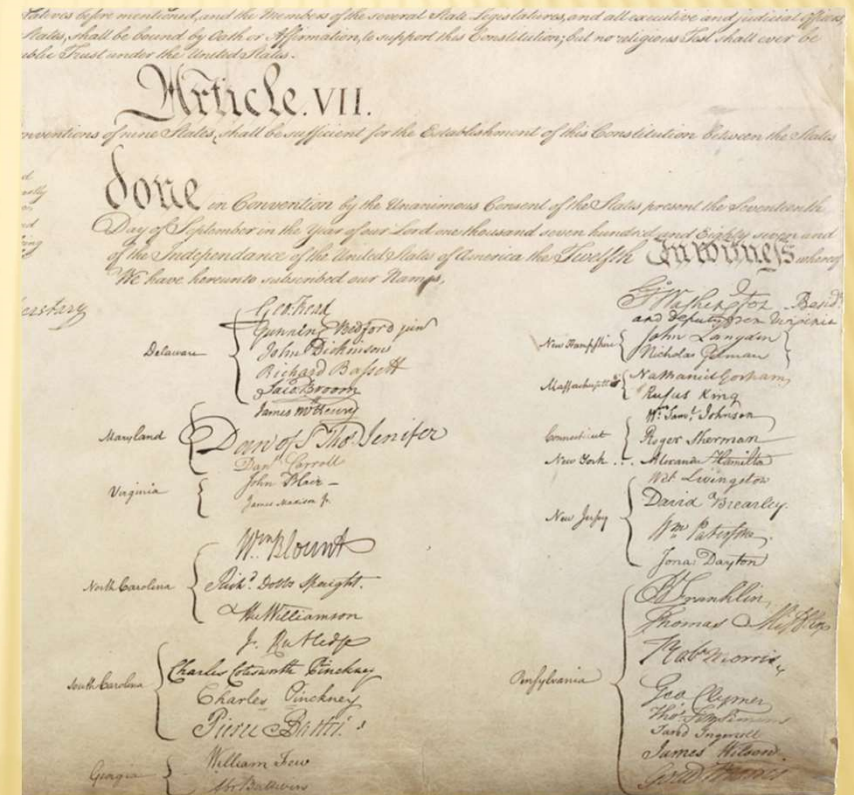 tatives before mentioned, and the Members of the several State Legislatures, and all executive and judicial Officers,
States, shall be bound by Oath or Affirmation, to support this Constitution; but no religious Test shall ever be
ublic Trust under the United States.
Article. VII.
nventions of nine States, shall be sufficient for the Establishment of this Constitution between the States
done in Convention by the Unanimous Consent of the States present the Seventeenth
Day of September in the Year of our Lord one thousand seven hundred and Eighty seven and
of the Independance of the United States of America the Twelfth In witness whereof
We have hereunto subscribed our Names,
cretary
Delaware
Geo: Read
Gunning Bedford jun
John Dickinson
Richard Bassett
Jaco: Broom
Maryland
James McHenry
Dan of St Thos. Jenifer
Danl Carroll
Virginia
John Blair—
James Madison Jr.
North Carolina
Wm Blount
Richd. Dobbs Spaight.
Hu Williamson
South Carolina
J. Rutledge
Charles Cotesworth Pinckney
Charles Pinckney
Pierce Butler.
Georgia
William Few
Abr Baldwin
Go. Washington
and deputy from Virginia
New Hampshire
John Langdon
Nicholas Gilman
Massachusetts
Nathaniel Gorham
Rufus King
Connecticut
Wm. Saml. Johnson
Roger Sherman
New York . . . Alexander Hamilton
New Jersey
Wil: Livingston
David Brearley.
Wm. Paterson.
Jona: Dayton
Pensylvania
B Franklin
Thomas Mifflin
Robt Morris
Geo. Clymer
Thos. FitzSimons
Jared Ingersoll
James Wilson.
Gouv Morris